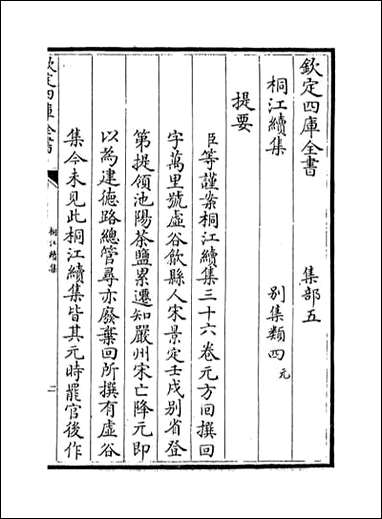 欽定四庫全書 集部五
桐江續集 別集類四 元
提要
臣等謹案桐江續集三十六卷元方回撰回
字萬里號虛谷歙縣人宋景定壬戌別省登
第提領池陽茶鹽累遷知嚴州宋亡降元即
以為建德路總管尋亦廢棄回所撰有虛谷
集今未見此桐江續集皆其元時罷官後作
欽定四庫全書
桐江續集